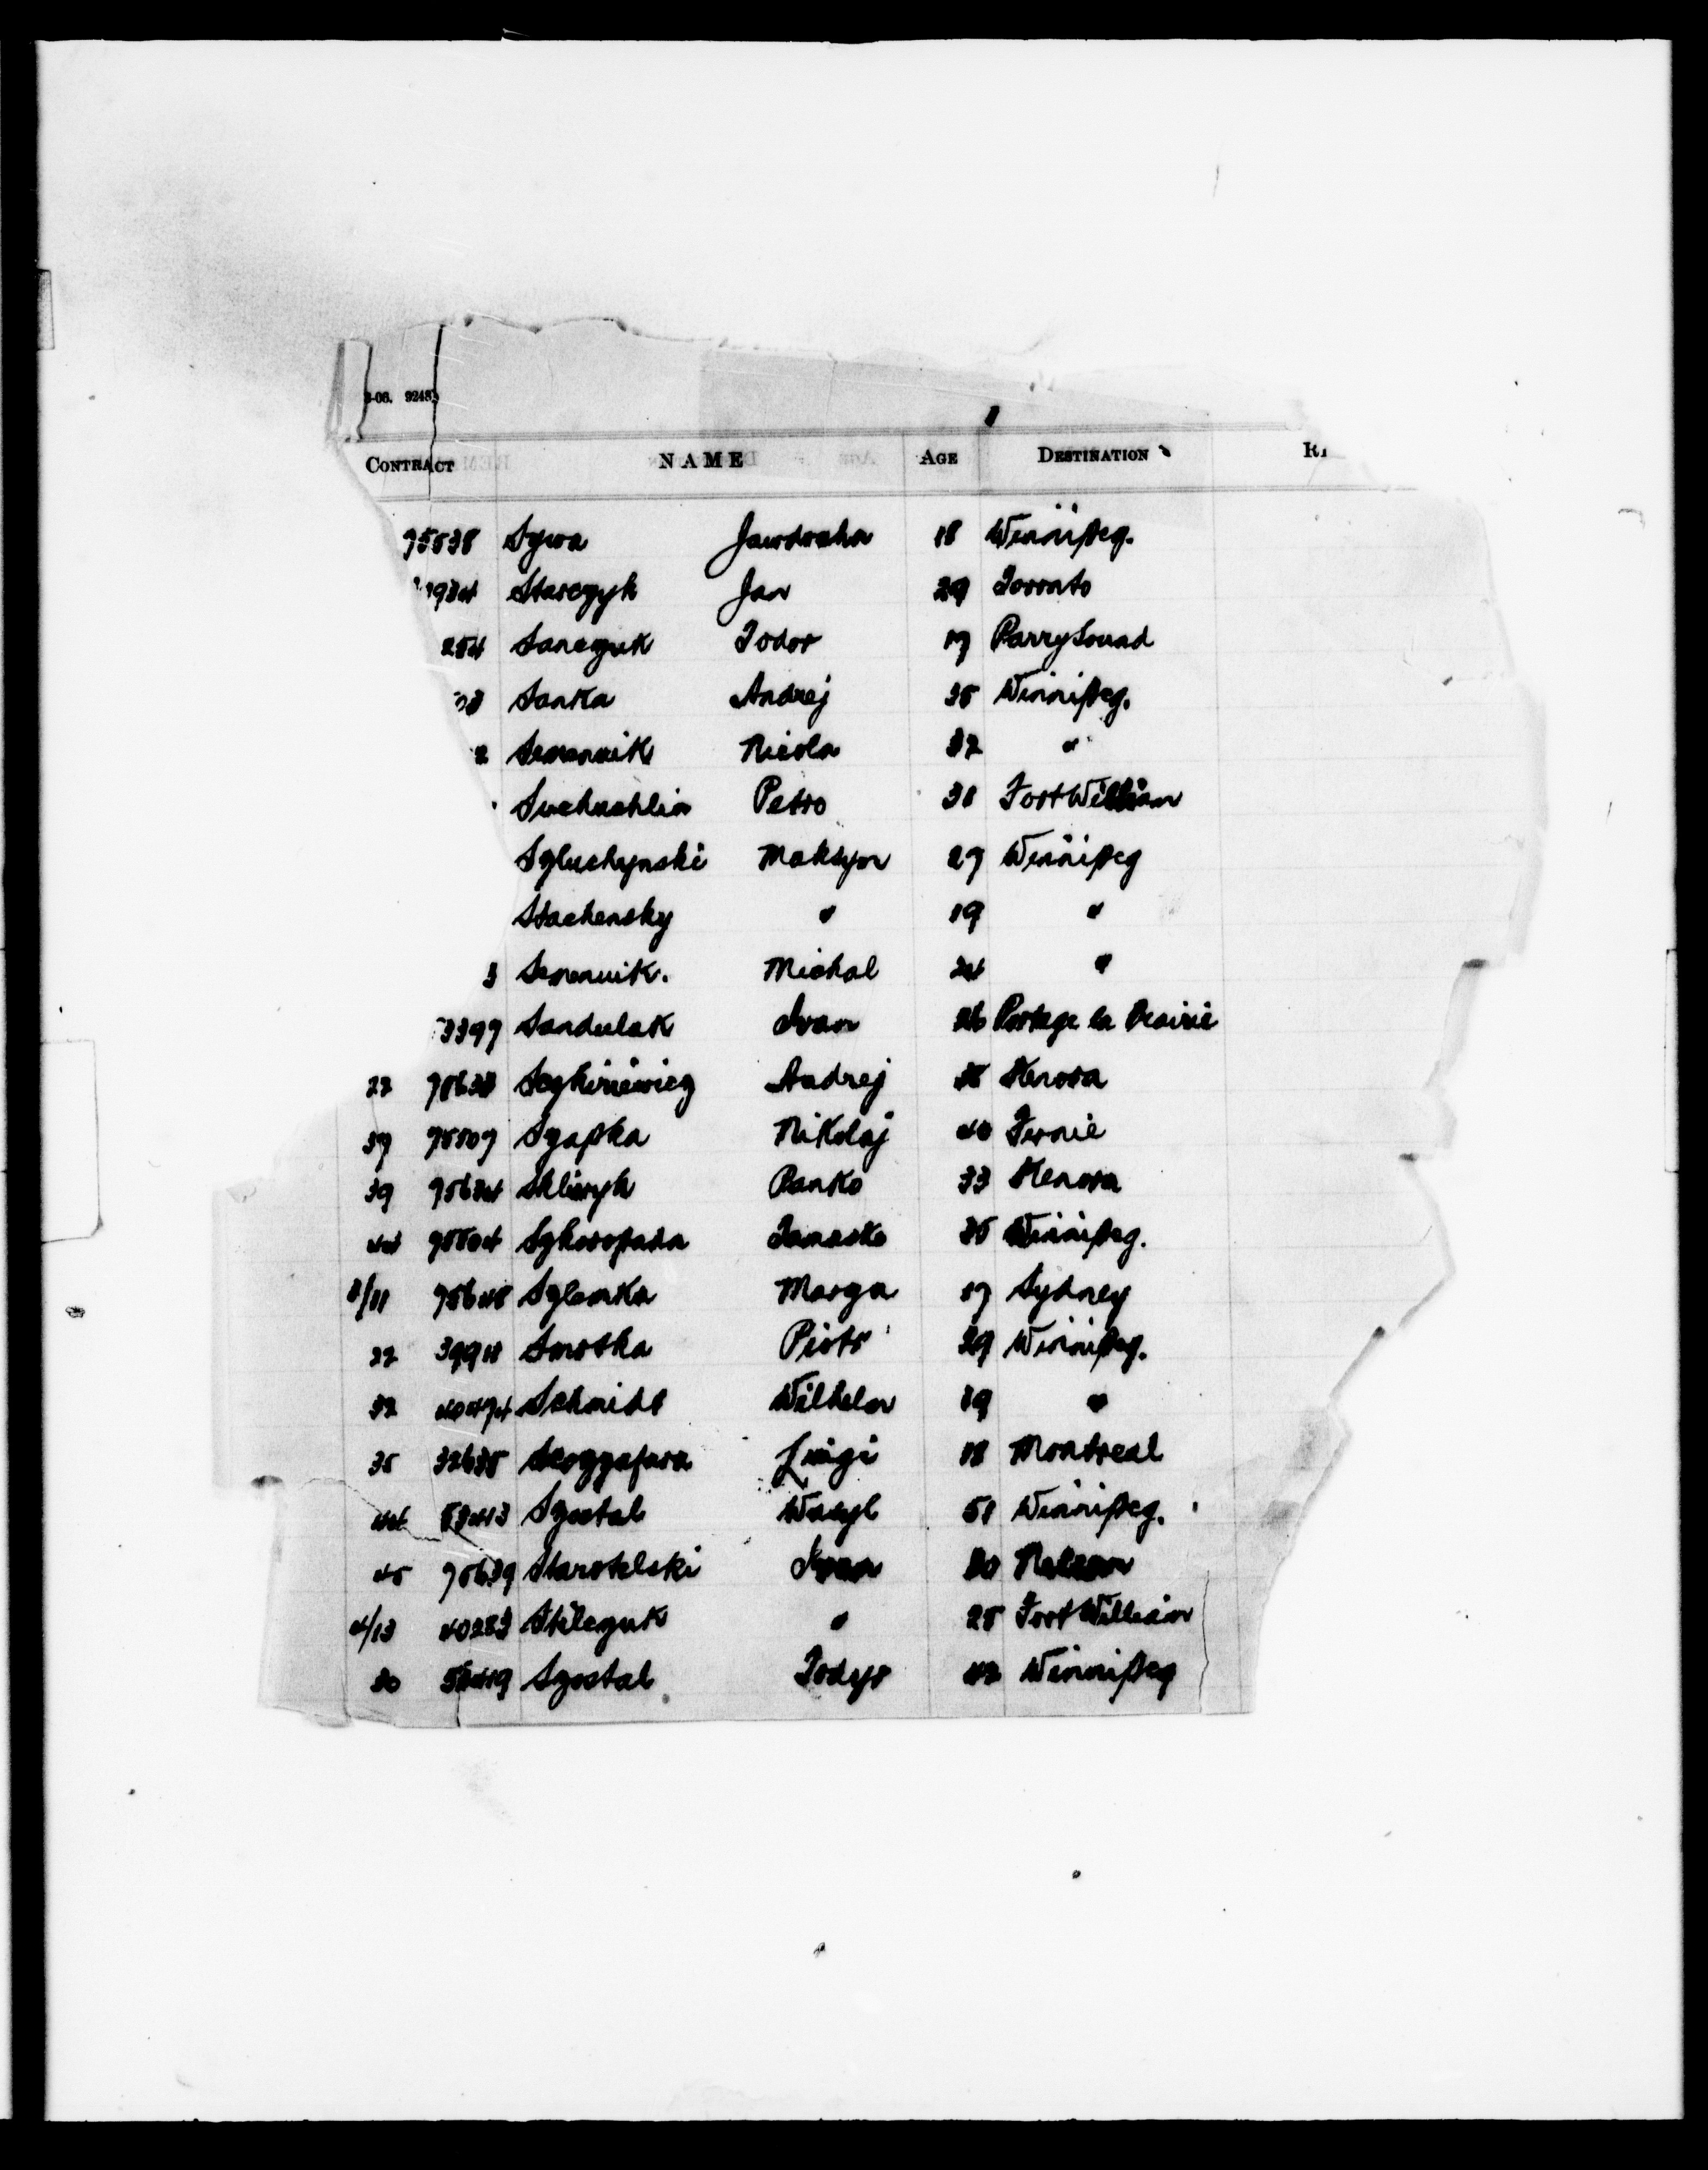 3-06. 9248
CONTRACT NAME AGE DESTINATION
95538 Sywa Jawdocha 18 Winnipeg.
Starczyk Jan 29 Toronto
254 Sanczuk Todor 17 Parry Sound
Sanka Andrej 35 Winnipeg.
2 Semaniuk Nicola 32 "
Petro 31 Fort William
Szluchynski Maksym 27 Winnipeg
Stachensky " 19 "
3 Semeniuk. Michal 24 "
3397 Sandulak Ivan 26 Portage la Prairie
22 Andrej Kenora
37 Szapka Nikolaj 40 Fernie
39 95634 Skliaryk Panko 33 Kenora
44 95504 Sykoropada Tanasko 35 Winnipeg.
3/11 95648 Szlemka Marya 17 Sydney
22 39918 Smotka Piotr 29 Winnipeg.
32 40474 Schmidt Wilhelm 19 "
35 32635 Luigi 18 Montreal
44 Szostal Wasyl 51 Winnipeg.
45 95639 Starotelski Ivan 30 Nelson
4/13 40283 Stileczuk " 25 Fort William
30 Szostal Fodyr 42 Winnipeg